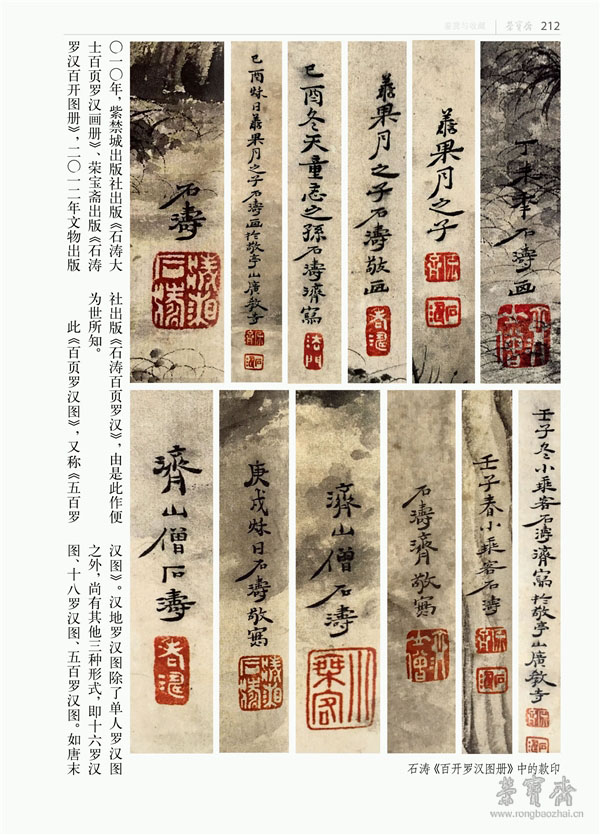 鉴赏与收藏 榮寶齋 212
丁未年石濤画
善果月之子
善果月之子石濤敬画
己酉冬天童忞之孫石濤濟寫
己酉秌日善果月之子石濤画於敬亭山廣教寺
石濤
壬子冬小乘客石濤濟寫於敬亭山廣教寺
壬子春小乘客石濤
石濤濟敬寫
濟山僧石濤
庚戌秌日石濤敬寫
濟山僧石濤
石涛《百开罗汉图册》中的款印
〇一〇年，紫禁城出版社出版《石涛大
士百页罗汉画册》、荣宝斋出版《石涛
罗汉百开图册》，二〇一二年文物出版
社出版《石涛百页罗汉》，由是此作便
为世所知。
此《百页罗汉图》，又称《五百罗
汉图》。汉地罗汉图除了单人罗汉图
之外，尚有其他三种形式，即十六罗汉
图、十八罗汉图、五百罗汉图。如唐末
榮寶齋
www.rongbaozhai.cn